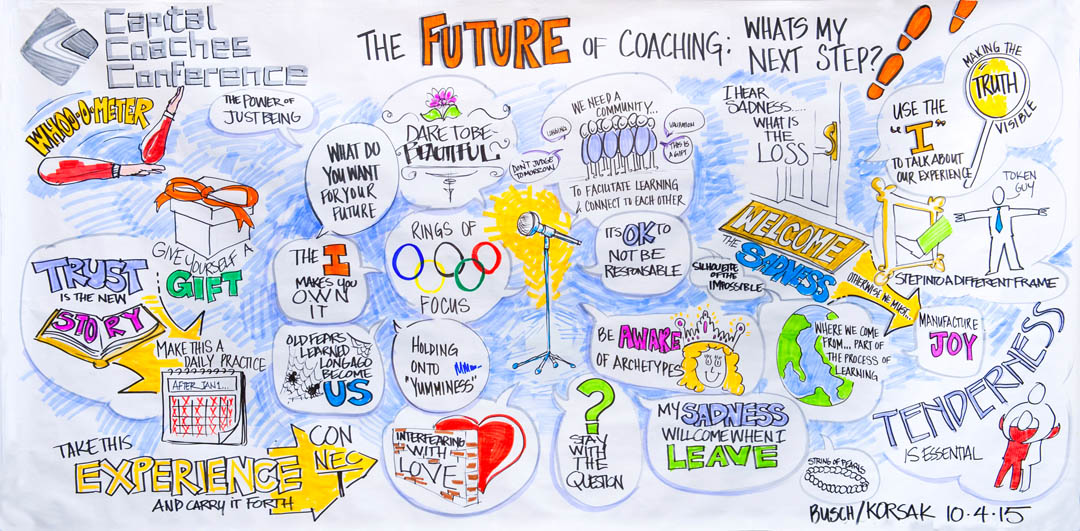 Capital
Coaches
Conference
THE FUTURE OF COACHING:
WHATS MY
NEXT STEP?
WHOO-O-METER
THE POWER OF
JUST BEING
GIVE YOURSELF A
GIFT
TRUST
IS THE NEW
STORY
MAKE THIS A
DAILY PRACTICE
AFTER JAN 1...
TAKE THIS
EXPERIENCE
AND CARRY IT FORTH
CON
NEC
WHAT DO
YOU WANT
FOR YOUR
FUTURE
DARE TO BE
BEAUTIFUL
THE I
MAKES YOU
OWN
IT
RINGS OF
FOCUS
OLD FEARS
LEARNED
LONG AGO
BECOME
US
HOLDING
ONTO mmm...
"YUMMINESS"
INTERFEARING
WITH
LOVE
WE NEED A
COMMUNITY...
VALIDATION
THIS IS
A GIFT
DON'T JUDGE
TOMORROW
TO FACILITATE LEARNING
& CONNECT TO EACH OTHER
ITS OK TO
NOT BE
RESPONSABLE
SILHOUETTE
OF THE
IMPOSSIBLE
BE AWAKE
OF ARCHETYPES
?
STAY
WITH
THE
QUESTION
MY SADNESS
WILL COME WHEN I
LEAVE
I HEAR
SADNESS....
WHAT IS
THE
LOSS
WELCOME
THE
SADNESS
OTHERWISE WE MUST...
MANUFACTURE
JOY
WHERE WE COME
FROM... PART OF
THE PROCESS OF
LEARNING
MAKING THE
TRUTH
VISIBLE
USE THE
"I"
TO TALK ABOUT
OUR EXPERIENCE
TOKEN
GUY
STEP INTO A DIFFERENT FRAME
TENDERNESS
IS ESSENTIAL
STRING OF PEARLS
BUSCH/KORSAK 10.4.15